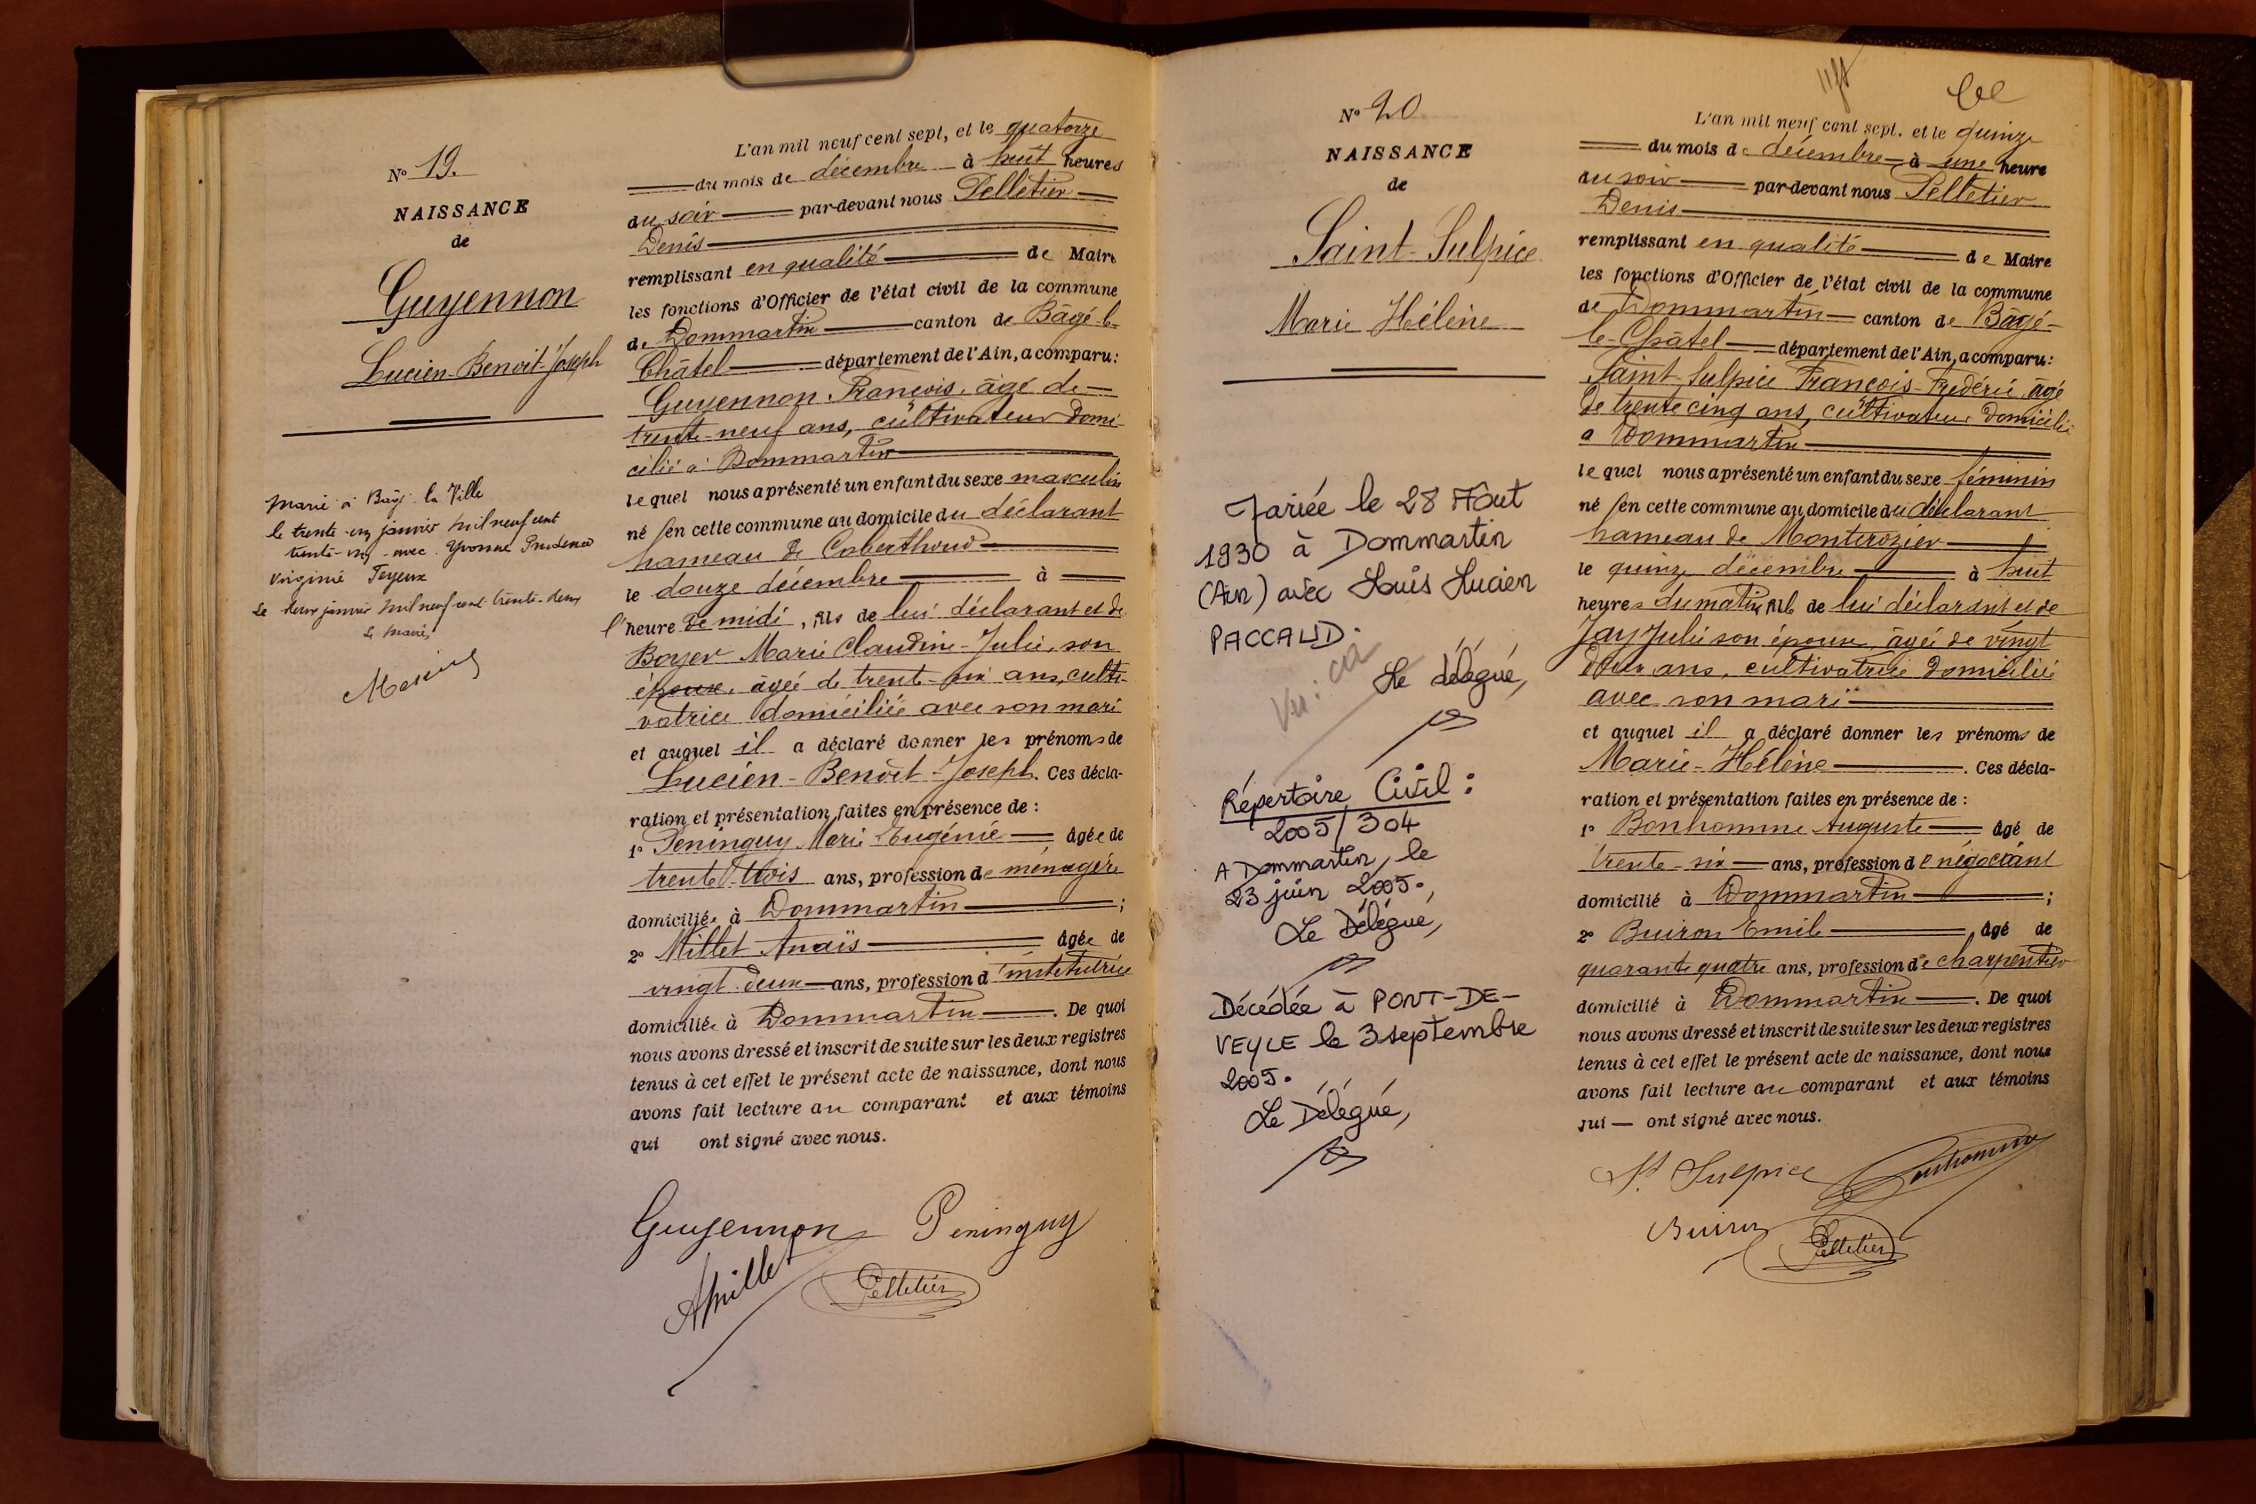 N° 19.
NAISSANCE
de
Guyennon
Lucien-Benoit-Joseph
Marié à Bâgé la Ville
le trente-un janvier mil neuf cent
trente-un avec Yvonne Prudence
Virginie Teyeux
Le deux janvier mil neuf cent trente-deux
Le maire,
L'an mil neuf cent sept, et le quatorze
du mois de décembre à huit heures
du soir par-devant nous Pelletier
Denis
remplissant en qualité de Maire
les fonctions d'Officier de l'état civil de la commune
de Dommartin canton de Bâgé-le-
Châtel département de l'Ain, a comparu:
Guyennon François, âgé de
trente-neuf ans, cultivateur domi-
cilié à Dommartin
lequel nous a présenté un enfant du sexe masculin
né en cette commune au domicile du déclarant
hameau de Coberthoud
le douze décembre à
l'heure de midi, fils de lui déclarant et de
Boyer Marie Claudine-Julie, son
épouse, âgée de trente-six ans, culti-
vatrice domiciliée avec son mari
et auquel il a déclaré donner les prénoms de
Lucien-Benoît-Joseph. Ces décla-
ration et présentation faites en présence de :
1° Peninguy Marie Eugénie âgée de
trente-trois ans, profession de ménagère
domiciliée à Dommartin ;
2° Millet Anaïs âgée de
vingt-deux ans, profession d'institutrice
domiciliée à Dommartin. De quoi
nous avons dressé et inscrit de suite sur les deux registres
tenus à cet effet le présent acte de naissance, dont nous
avons fait lecture au comparant et aux témoins
qui ont signé avec nous.
Guyennon Peninguy
AMillet Pelletier
N° 20
NAISSANCE
de
Saint-Sulpice
Marie Hélène
Mariée le 28 Août
1930 à Dommartin
(Ain) avec Louis Lucien
PACCAUD.
Le délégué,
Répertoire Civil :
2005/304
A Dommartin, le
23 juin 2005.
Le Délégué,
Décédée à PONT-DE-
VEYLE le 3 septembre
2005.
Le Délégué,
L'an mil neuf cent sept, et le quinze
du mois de décembre à une heure
du soir par-devant nous Pelletier
Denis
remplissant en qualité de Maire
les fonctions d'Officier de l'état civil de la commune
de Dommartin canton de Bâgé-
le-Châtel département de l'Ain, a comparu:
Saint-Sulpice François-Frédéric, âgé
de trente cinq ans, cultivateur domicilié
à Dommartin
lequel nous a présenté un enfant du sexe féminin
né en cette commune au domicile du déclarant
hameau de Monterozier
le quinze décembre à huit
heures du matin, fils de lui déclarant et de
Jay Julie son épouse, âgée de vingt
deux ans, cultivatrice domiciliée
avec son mari
et auquel il a déclaré donner les prénoms de
Marie-Hélène. Ces décla-
ration et présentation faites en présence de :
1° Bonhomme Auguste âgé de
trente-six ans, profession de négociant
domicilié à Dommartin ;
2° Buiron Emile, âgé de
quarante quatre ans, profession de charpentier
domicilié à Dommartin. De quoi
nous avons dressé et inscrit de suite sur les deux registres
tenus à cet effet le présent acte de naissance, dont nous
avons fait lecture au comparant et aux témoins
qui ont signé avec nous.
St Sulpice Bonhomme
Buiron Pelletier